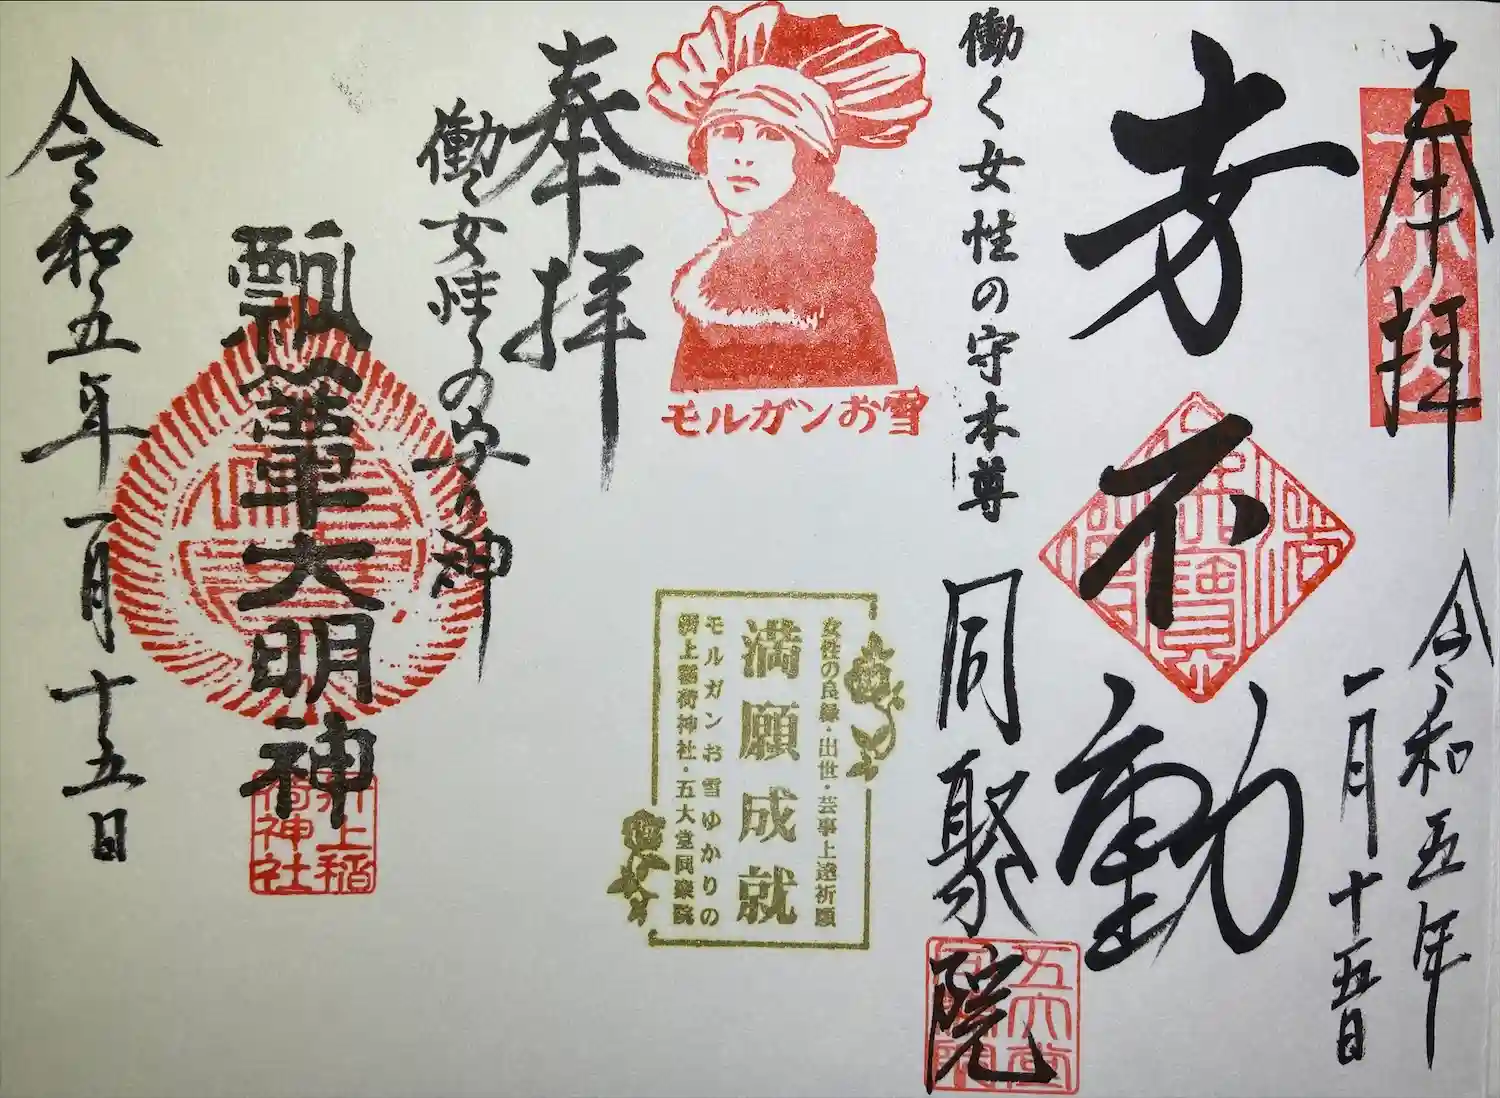 奉拝
令和五年
一月十五日
方不動
働く女性の守本尊
同聚院
五大堂
モルガンお雪
女性の良縁・出世・芸事上達祈願
満願成就
モルガンお雪ゆかりの
折上稲荷神社・五大堂同聚院
奉拝
働く女性の守り神
瓢箪大明神
折上稲
荷神社
令和五年一月十五日